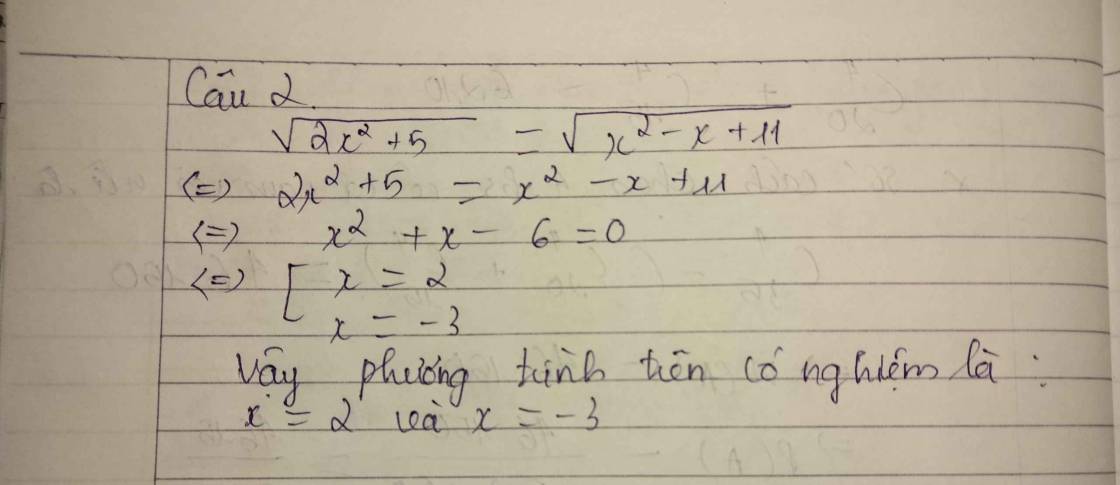 Câu 2.
√(2x² + 5) = √(x² - x + 11)
<=> 2x² + 5 = x² - x + 11
<=> x² + x - 6 = 0
<=> [ x = 2
x = -3
Vậy phương trình trên có nghiệm là :
x = 2 và x = -3